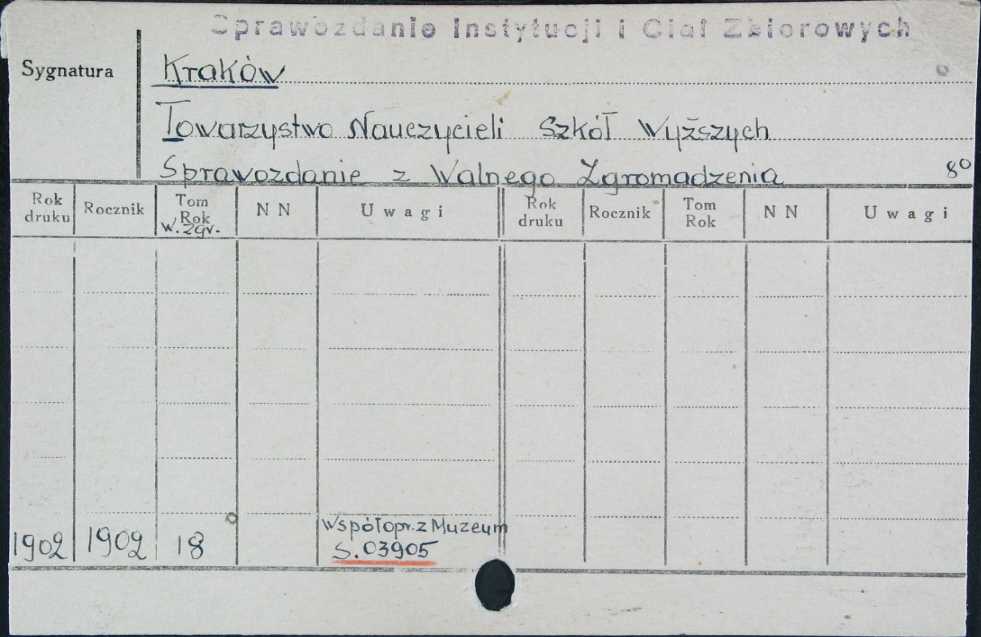 Sprawozdanie Instytucji i Ciał Zbiorowych
Sygnatura Kraków
Towarzystwo Nauczycieli Szkół Wyższych
Sprawozdanie z Walnego Zgromadzenia 8°
Rok druku Rocznik Tom Rok W. Zgr. N N Uwagi Rok druku Rocznik Tom Rok N N Uwagi
Współopr. z Muzeum
1902 1902 18 S. 03905